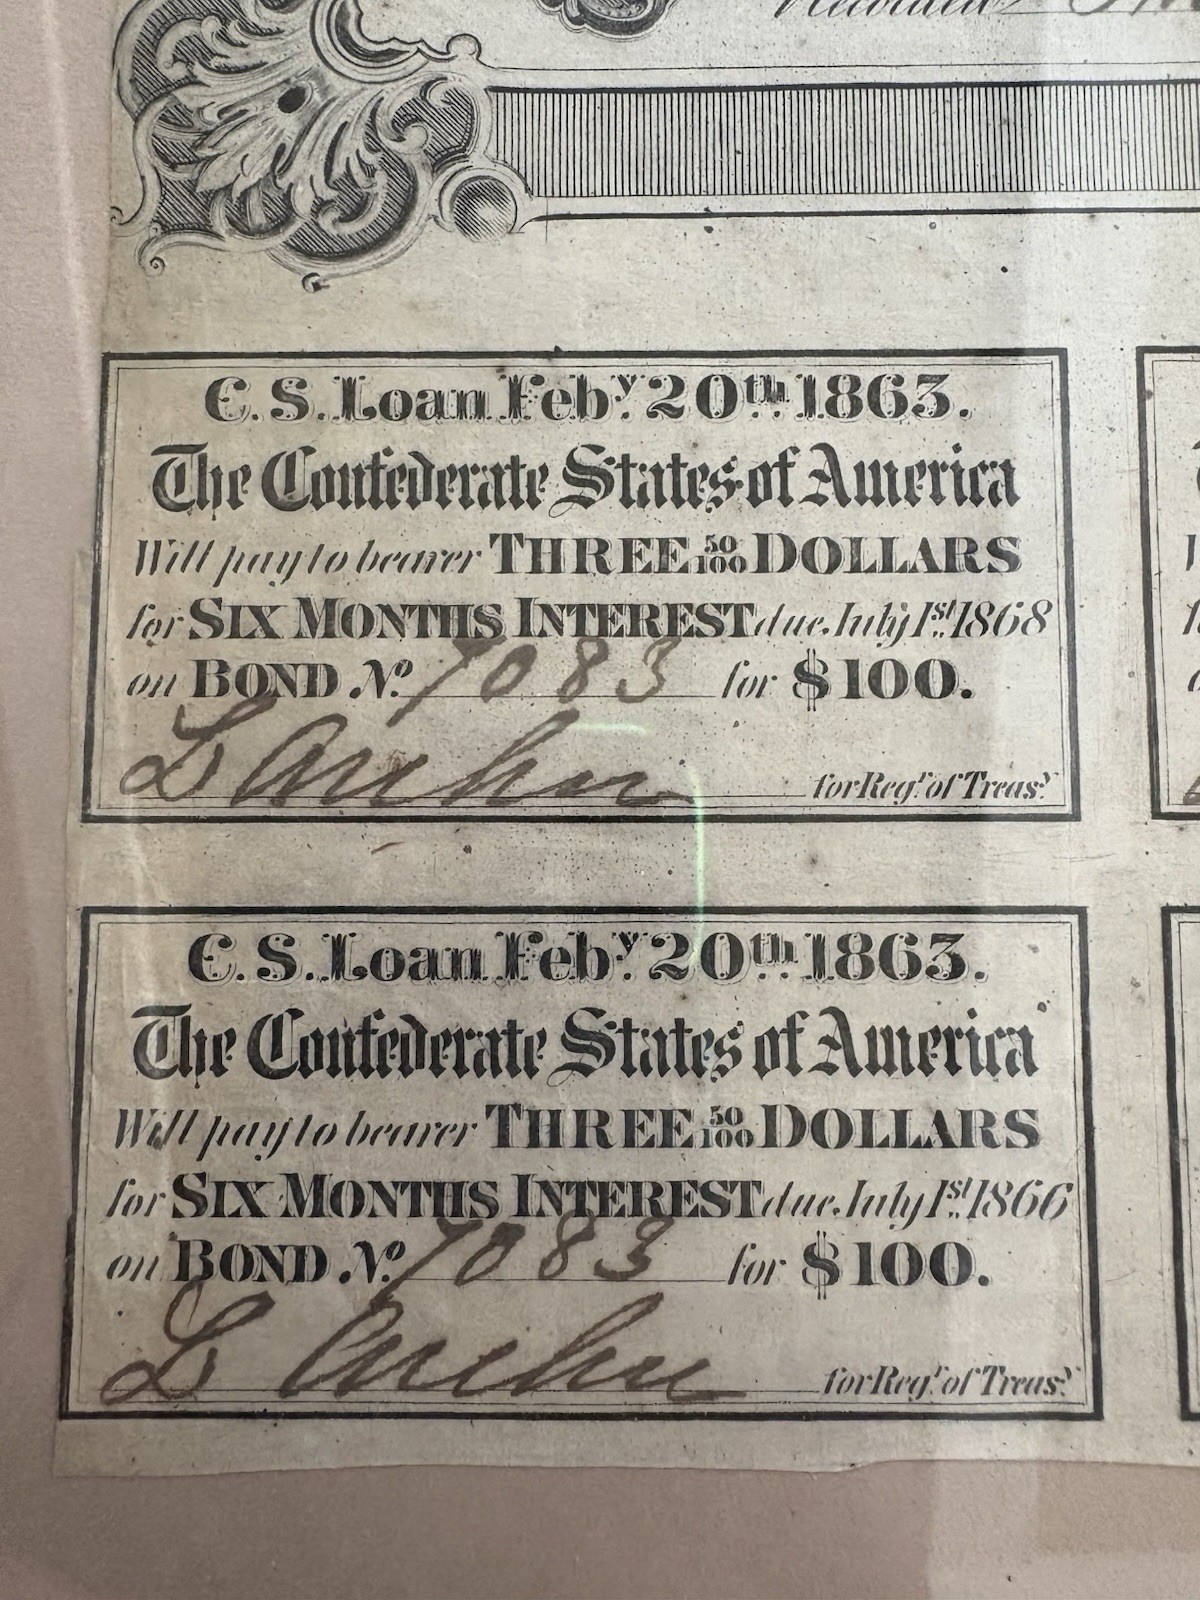 Recorded
C. S. Loan Feby. 20th 1863.
The Confederate States of America
Will pay to bearer THREE 50/100 DOLLARS
for SIX MONTHS INTEREST due July 1st 1868
on BOND No. 7083 for $100.
for Regr. of Treasy.
C. S. Loan Feby. 20th 1863.
The Confederate States of America
Will pay to bearer THREE 50/100 DOLLARS
for SIX MONTHS INTEREST due July 1st 1866
on BOND No. 7083 for $100.
for Regr. of Treasy.